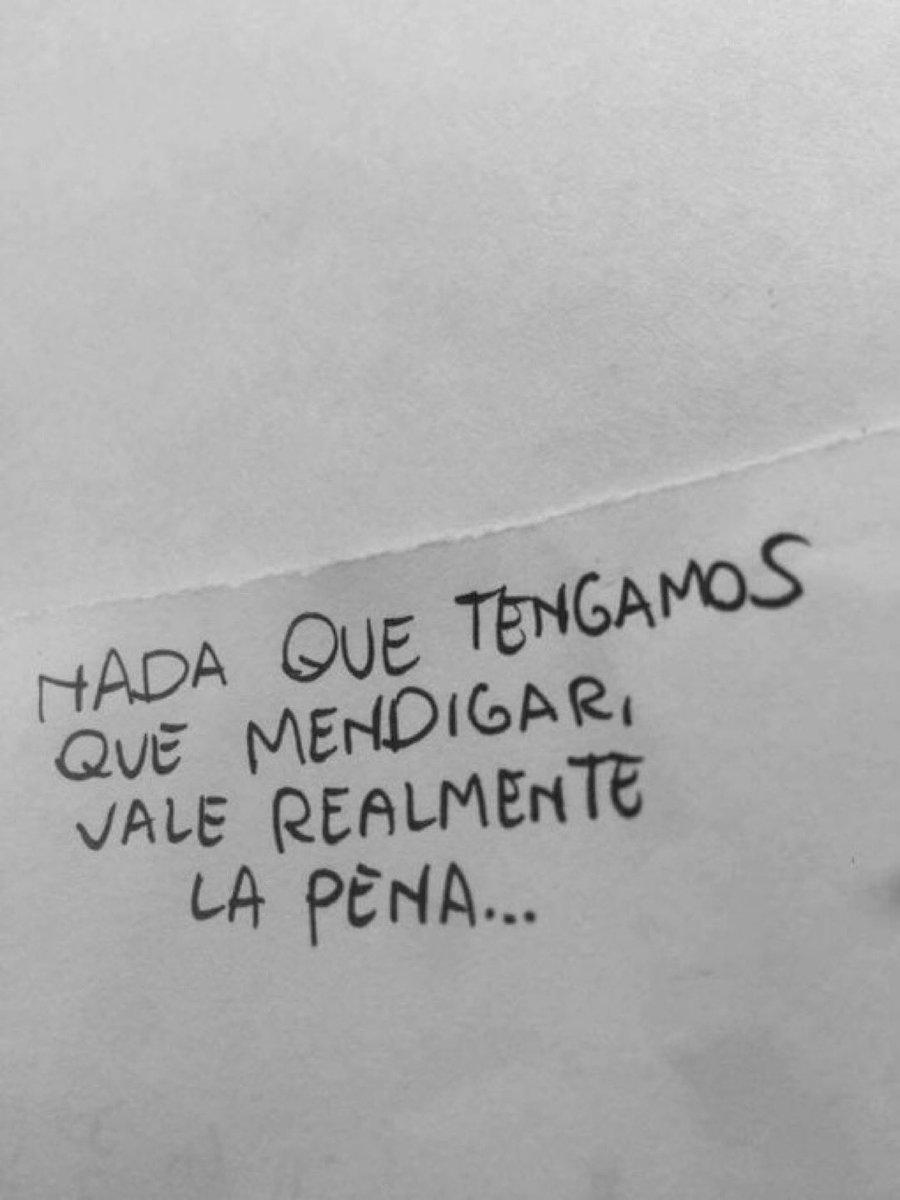 NADA QUE TENGAMOS
QUE MENDIGAR,
VALE REALMENTE
LA PENA...